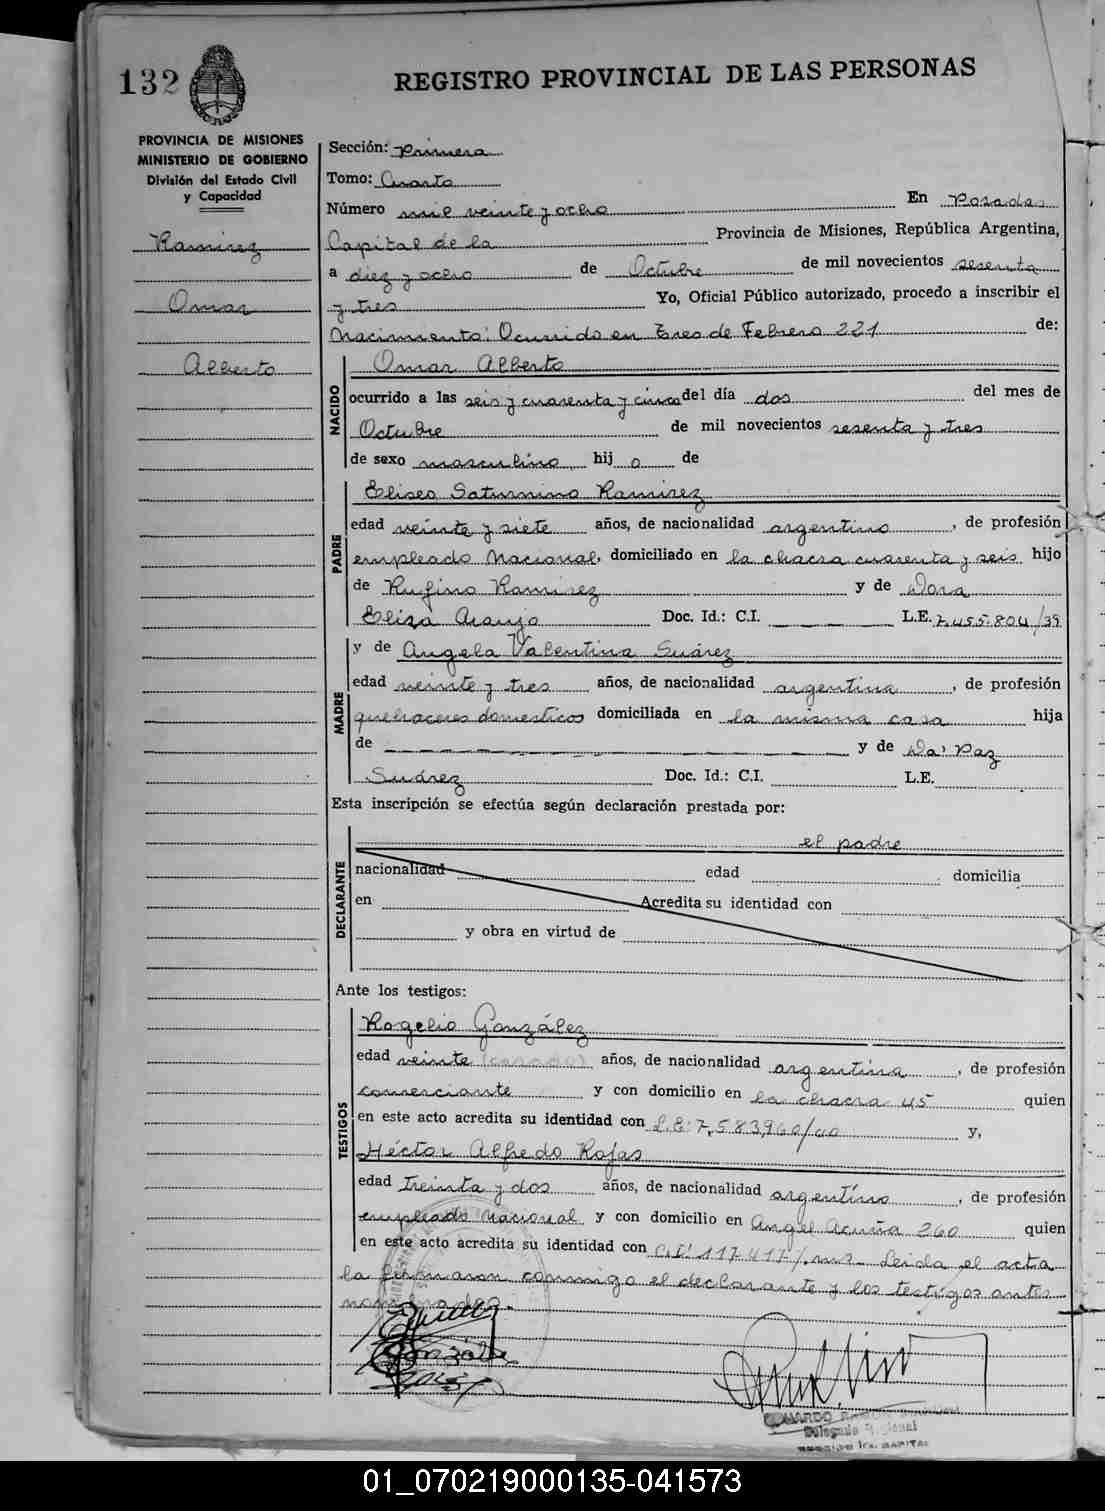 132
REGISTRO PROVINCIAL DE LAS PERSONAS
PROVINCIA DE MISIONES
MINISTERIO DE GOBIERNO
División del Estado Civil
y Capacidad
Ramirez
Omar
Alberto
Sección: Primera
Tomo: Cuarto
Número mil veinte y ocho En Posadas
Capital de la Provincia de Misiones, República Argentina,
a diez y ocho de Octubre de mil novecientos sesenta
y tres Yo, Oficial Público autorizado, procedo a inscribir el
Nacimiento: Ocurrido en Tres de Febrero 221 de:
NACIDO
Omar Alberto
ocurrido a las seis y cuarenta y cinco del día dos del mes de
Octubre de mil novecientos sesenta y tres
de sexo masculino hij o de
PADRE
Eliseo Saturnino Ramirez
edad veinte y siete años, de nacionalidad argentino, de profesión
empleado Nacional, domiciliado en la chacra cuarenta y seis hijo
de Rufino Ramirez y de Dora
Eliza Araujo Doc. Id.: C.I. L.E. 7.455.804/39
MADRE
y de Angela Valentina Suárez
edad veinte y tres años, de nacionalidad argentina, de profesión
quehaceres domesticos domiciliada en la misma casa hija
de y de Da' Paz
Suárez Doc. Id.: C.I. L.E.
Esta inscripción se efectúa según declaración prestada por:
DECLARANTE
el padre
nacionalidad edad domicilia
en Acredita su identidad con
y obra en virtud de
Ante los testigos:
TESTIGOS
Rogelio González
edad veinte (casado) años, de nacionalidad argentina, de profesión
comerciante y con domicilio en la chacra 45 quien
en este acto acredita su identidad con L.E: 7.583960/40 y,
Héctor Alfredo Rojas
edad treinta y dos años, de nacionalidad argentino, de profesión
empleado nacional y con domicilio en Angel Acuña 260 quien
en este acto acredita su identidad con C.I: 117417/. Leida el acta
la firmaron conmigo el declarante y los testigos antes
nombrados.
González
Delegado
CAPITAL
01_070219000135-041573